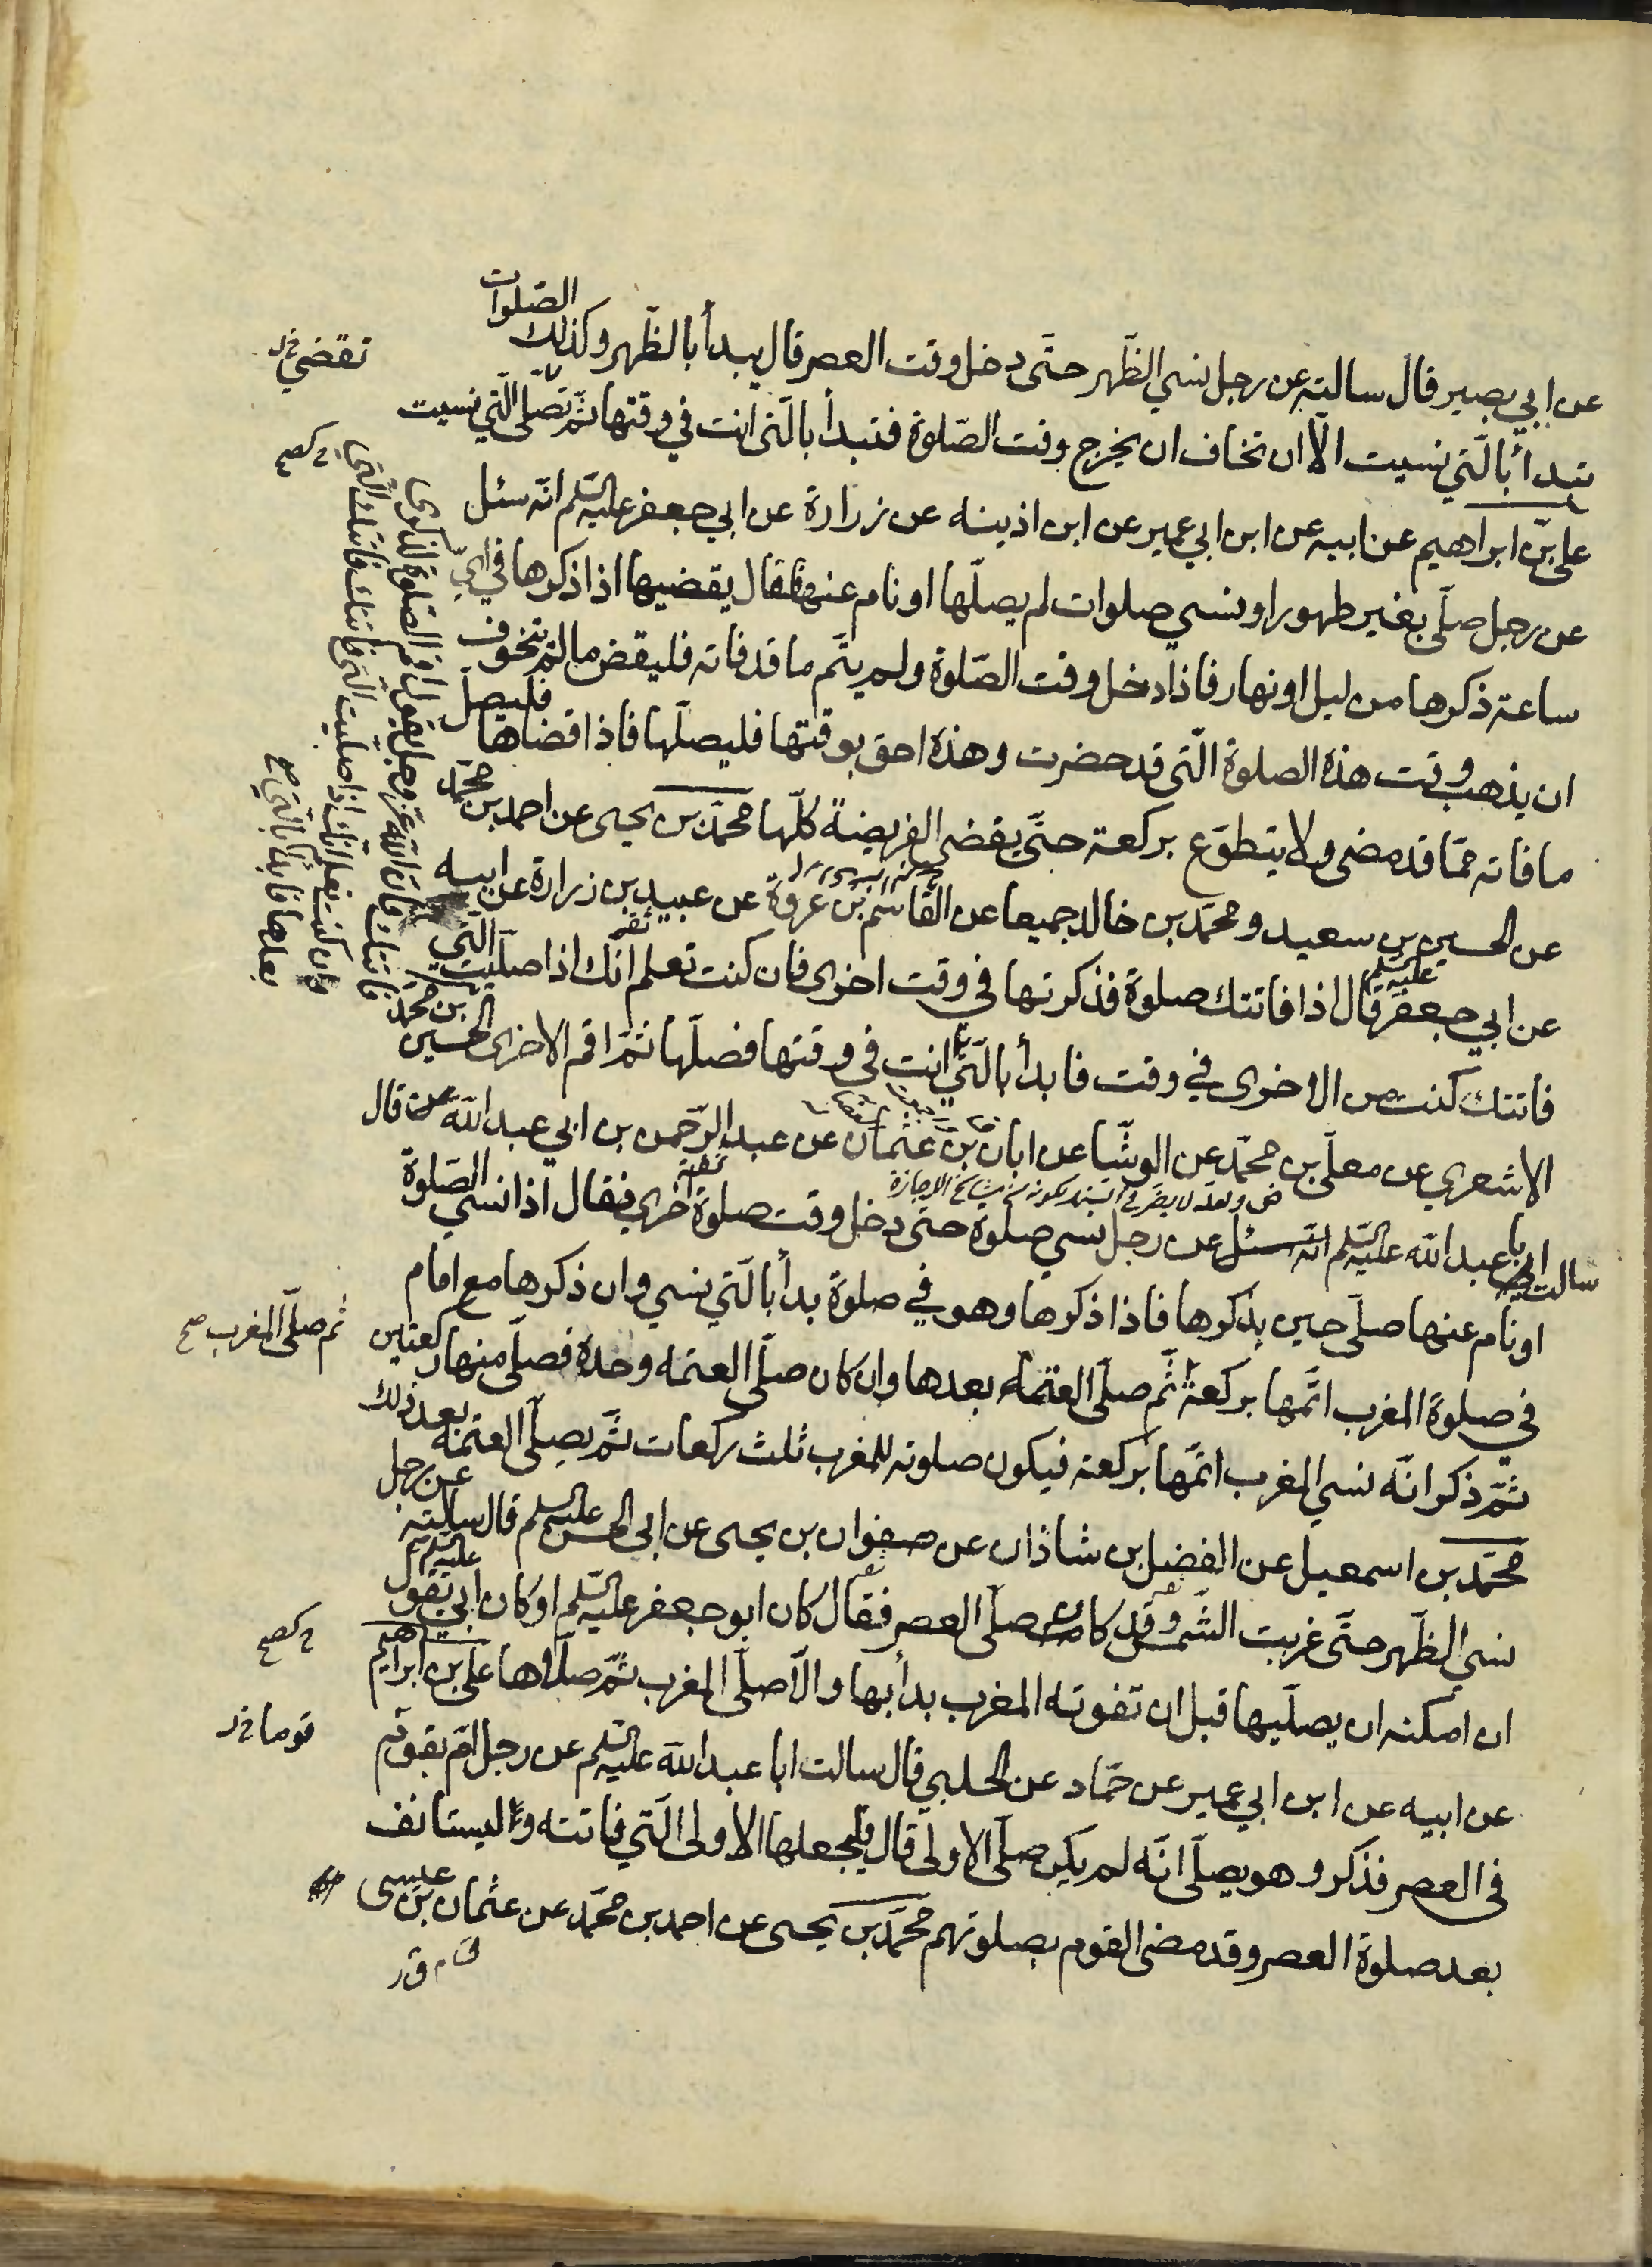 عن ابي بصير قال سالته عن رجل نسي الظّهر حتّى دخل وقت العصر قال يبدأ بالظّهر وكذلك الصّلوات
تبدأ بالّتي نسيت الّا ان تخاف ان يخرج وقت الصّلوة فتبدأ بالّتى انت في وقتها ثمّ تصلّى الّتي نسيت
تقضي
علي بن ابراهيم عن ابيه عن ابن ابي عمير عن ابن اذينه عن زرارة عن ابي جعفر عليه السّلم انّه سئل
عن رجل صلّى بغير طهور او نسي صلوات لم يصلّها او نام عنها فقال يقضيها اذا ذكرها في ايّ
ساعة ذكرها من ليل او نهار فاذا دخل وقت الصّلوة ولم يتّم ما قد فاته فليقض ما لم يتخوف
ان يذهب وقت هذه الصلوة الّتى قد حضرت وهذه احق بوقتها فليصلّها فاذا قضاها فليصلّ
ما فاته ممّا قد مضى ولا يتطوّع بركعة حتّى يقضى الفريضة كلّها محمّد بن يحيى عن احمد بن محمّد
عن الحسين بن سعيد ومحمّد بن خالد جميعا عن القاسم بن عروة عن عبيد بن زرارة عن ابيه
عن ابي جعفر عليه السّلم قال اذا فاتتك صلوة فذكرتها في وقت اخرى فان كنت تعلم انّك اذا صلّيت الّتي
فاتتك كنت من الاخرى في وقت فابدأ بالّتي
فاتتك فان الله عز وجل يقول اقم الصّلوة لذكرى
وان كنت تعلم انّك اذا صلّيت الّتى فاتتك فاتتك الّتى
بعدها فابدأ بالّتي صح
انت في وقتها فصلّها ثمّ اقم الاخرى الحسين بن محمّد
الاشعري عن معلّى بن محمّد عن الوشّا عن ابان بن عثمان عن عبد الرّحمن بن ابي عبد الله قال
ض ولعلّه لا يضر في السّند لكونه من مشايخ الاجازة
سالت ابا عبد الله عليه السّلم عن رجل نسي صلوة حتّى دخل وقت صلوة اخرى فقال اذا نسي الصّلوة
او نام عنها صلّى حين يذكرها فاذا ذكرها وهو في صلوة بدأ بالّتي نسي وان ذكرها مع امام
في صلوة المغرب اتمّها بركعة ثّم صلّى العتمة بعدها وان كان صلّى العتمه وحده فصلّى منها ركعتين
ثم صلّى المغرب صح
ثمّ ذكر انّه نسي المغرب اتمّها بركعة فيكون صلوته للمغرب ثلث ركعات ثمّ يصلّى العتمة بعد ذلك
محمّد بن اسمعيل عن الفضل بن شاذان عن صفوان بن يحيى عن ابي الحسن عليه السّلم قال سالته عن رجل
نسي الظّهر حتّى غربت الشّمس وقد كان صلّى العصر فقال كان ابو جعفر عليه السّلم او كان ابي عليه السّلم يقول
ان امكنه ان يصلّيها قبل ان تفوته المغرب بدأ بها والّا صلّى المغرب ثمّ صلّاها علي بن ابراهيم
عن ابيه عن ابن ابي عمير عن حمّاد عن الحلبي قال سالت ابا عبد الله عليه السّلم عن رجل امّ بقوم
قوما
في العصر فذكر وهو يصلّى انّه لم يكن صلّى الاولى قال فليجعلها الاولى الّتي فاتته وليستانف
بعد صلوة العصر وقد مضى القوم بصلوتهم محمّد بن يحيى عن احمد بن محمّد عن عثمان بن عيسى